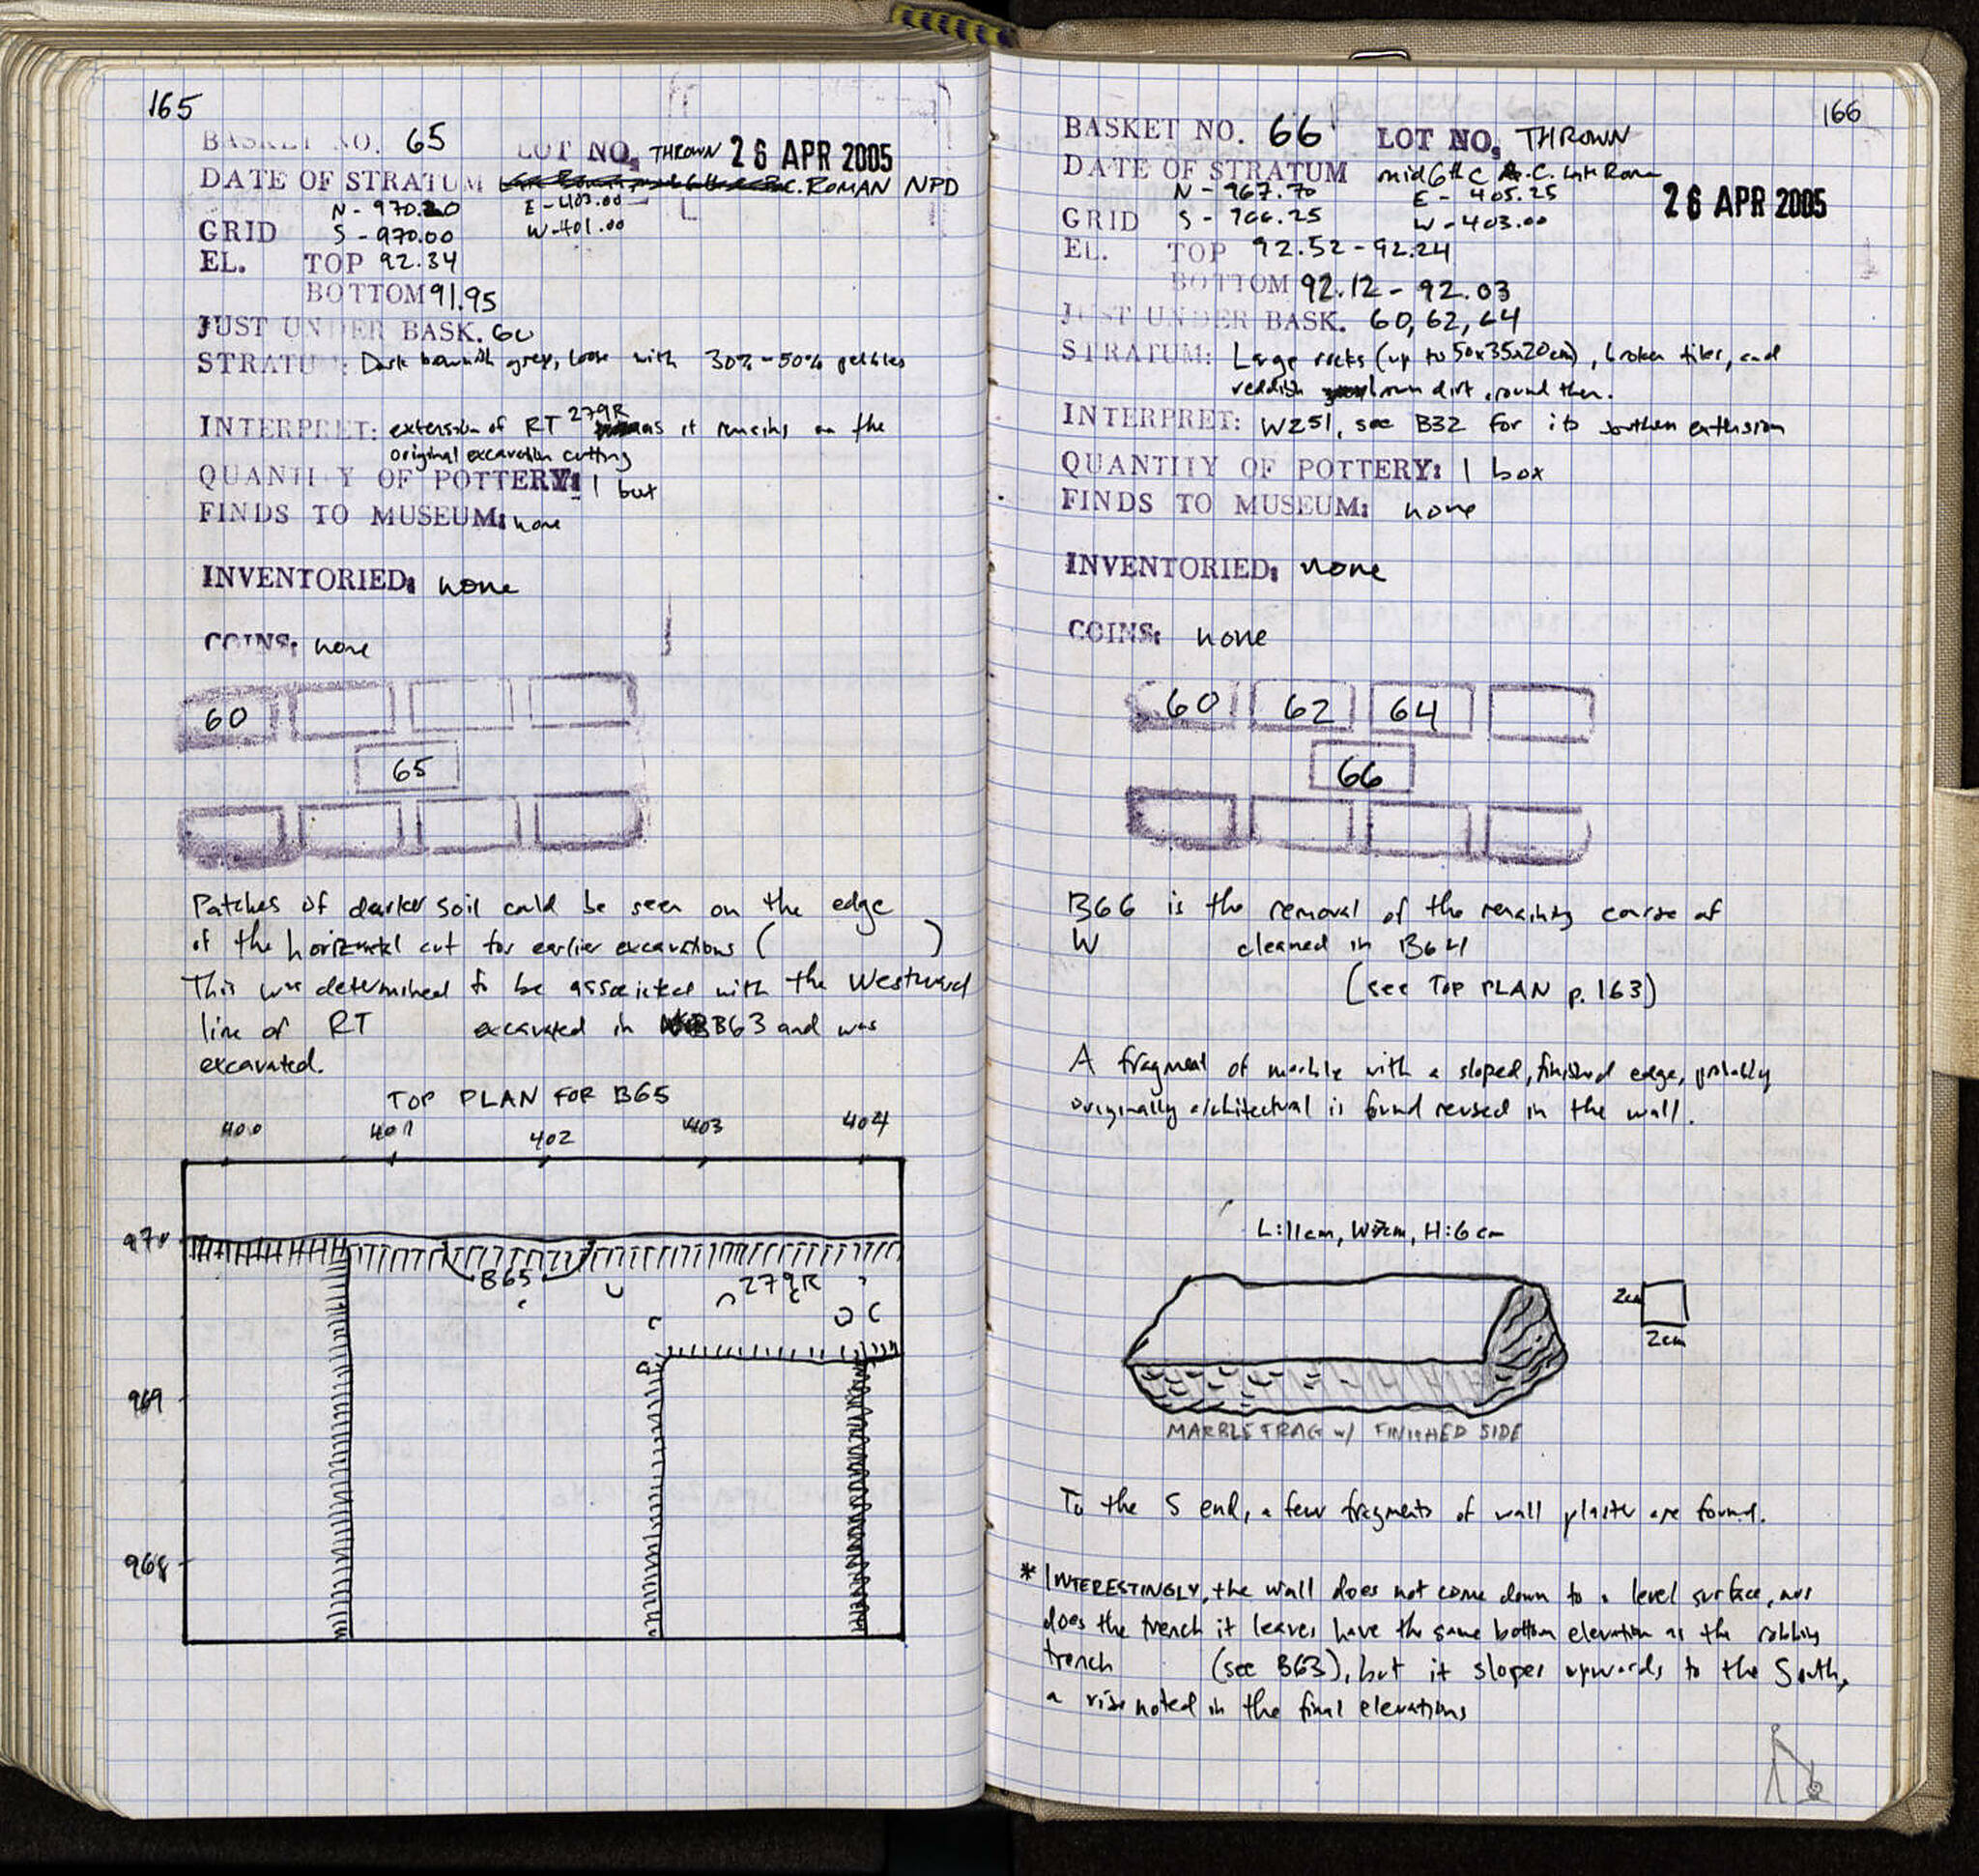 165
BASKET NO. 65 LOT NO. THROWN 26 APR 2005
DATE OF STRATUM C. ROMAN NPD
N - 970.20 E - 403.00
GRID S - 970.00 W - 401.00
EL. TOP 92.34
BOTTOM 91.95
JUST UNDER BASK. 60
STRATUM: Dark brownish grey, loose with 30% - 50% pebbles
INTERPRET: extension of RT 279R as it remains on the
original excavation cutting
QUANTITY OF POTTERY: 1 but
FINDS TO MUSEUM: none
INVENTORIED: none
COINS: none
60
65
Patches of darker soil could be seen on the edge
of the horizontal cut for earlier excavations ( )
This was determined to be associated with the Westward
line of RT excavated in B63 and was
excavated.
TOP PLAN FOR B65
400 401 402 403 404
970
B65 279R
969
968
166
BASKET NO. 66 LOT NO. THROWN
DATE OF STRATUM mid 6th C A.C. Late Roman
26 APR 2005
N - 967.70 E - 405.25
GRID S - 966.25 W - 403.00
EL. TOP 92.52 - 92.24
BOTTOM 92.12 - 92.03
JUST UNDER BASK. 60, 62, 64
STRATUM: Large rocks (up to 50x35x20cm), broken tiles, and
reddish brown dirt around them.
INTERPRET: W251, see B32 for its southern extension
QUANTITY OF POTTERY: 1 box
FINDS TO MUSEUM: none
INVENTORIED: none
COINS: none
60 62 64
66
B66 is the removal of the remaining course of
W cleaned in B64
(see TOP PLAN p. 163)
A fragment of marble with a sloped, finished edge, probably
originally architectural is found reused in the wall.
L: 11cm, W: cm, H: 6 cm
2cm
2cm
MARBLE FRAG w/ FINISHED SIDE
To the S end, a few fragments of wall plaster are found.
* INTERESTINGLY, the wall does not come down to a level surface, nor
does the trench it leaves have the same bottom elevation as the robbing
trench (see B63), but it slopes upwards to the South,
a rise noted in the final elevations